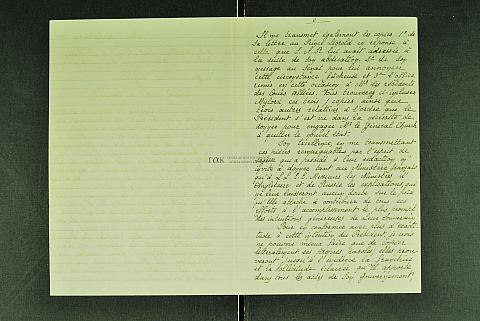 2
Il me transmet également les copies 1° de
la lettre au Prince Léopold en réponse à
celle que S. A. R. lui avait adressée à
la suite de Son abdication, 2° de Son
message au Sénat pour lui annoncer
cette circonstance fâcheuse et 3° de l'office
remis en cette occasion à Mrs les résidents
des Cours alliées. Vous trouverez ci-joint
Mylord ces trois copies ainsi que
trois autres relatives à l'ordre que le
Président s'est vu dans la nécessité de
donner pour engager Mr le Général Church
à quitter le
Son Excellence, en me transmettant
ces pièces remarquables par l'esprit de
sagesse qui a présidé à leur rédaction m'
invite à donner tant au Ministère français
qu'à L.L. E.E. Messieurs les Ministres d'
Angleterre et de Russie des explications, qui
ne leur laisseront aucun doute sur le prix
qu'elle attache à contribuer de tous ses
efforts à l'accomplissement le plus prompt
des intentions généreuses de leurs Souverains.
Pour me conformer avec plus d'exacti-
tude à cette intention du Président, je crois
ne pouvoir mieux faire que de copier
littéralement ses propres paroles; elles prou-
veront jusqu'à l'évidence la franchise
et la sollicitude éclairée qu'il apporte
dans tous les actes de Son gouvernement,
ΓΑΚ